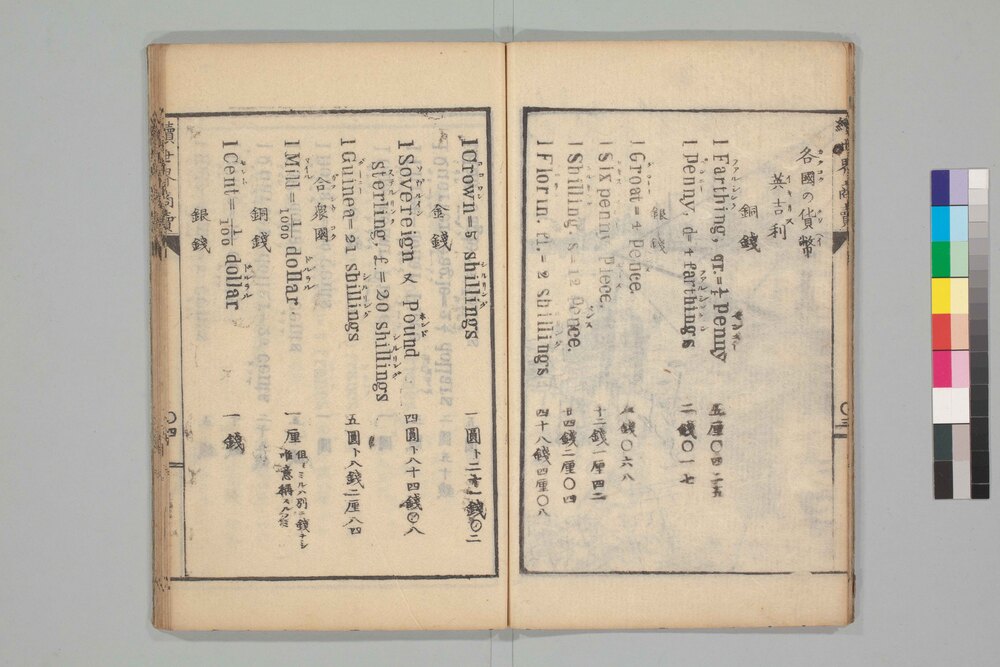 各國の貨幣
英吉利
銅錢
1 Farthing, qr.=¼ Penny 五厘〇四二五
1 Penny, d=4 farthings 二錢〇一七
銀錢
1 Groat=4 Pence. 八錢〇六八
1 Six penny Piece. 十二錢一厘〇二
1 Shilling, s=12 Pence. 廿四錢二厘〇四
1 Florin, fl.=2 Shillings. 四十八錢四厘〇八
1 Crown=5 shillings 一圓ト二十一錢〇二
金錢
1 Sovereign 又 Pound
sterling, £=20 shillings 四圓ト八十四錢〇八
1 Guinea=21 shillings 五圓ト八錢二厘八四
合衆國
1 Mill=1/1000 dollar 一厘
銅錢
1 Cent=1/100 dollar 一錢
銀錢